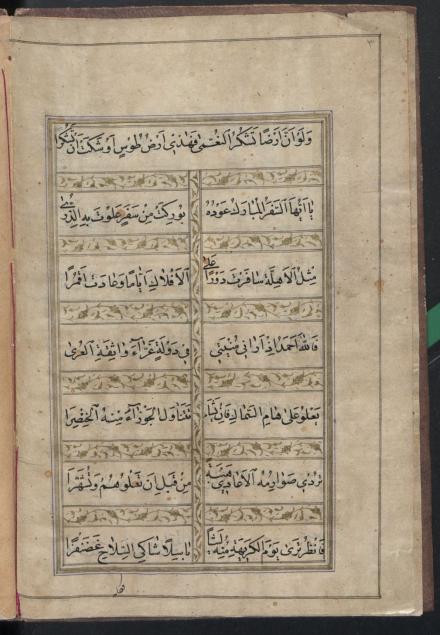 ولو ان ارضا تشكر النعمى فهذي ارض طوس اوشكت ان تشكرا
يا ايها السفر المبارك عوده بوركت من سفر علوت به الذرى
مثل الاهلة سافرت دورا على الافلاك اياما وعادت اقمرا
فالله احمد اذ اراني منيتي في دولة غراء وثيقة العرى
يعلو على هام السماك تتناول الجوزاء منه الخنصرا
تردي صوارمه الاعادي من قبل ان تعلوهم وتشهرا
فانظر ترى يوم الكريهة منه ليثا باسلا شاكي السلاح غضنفرا